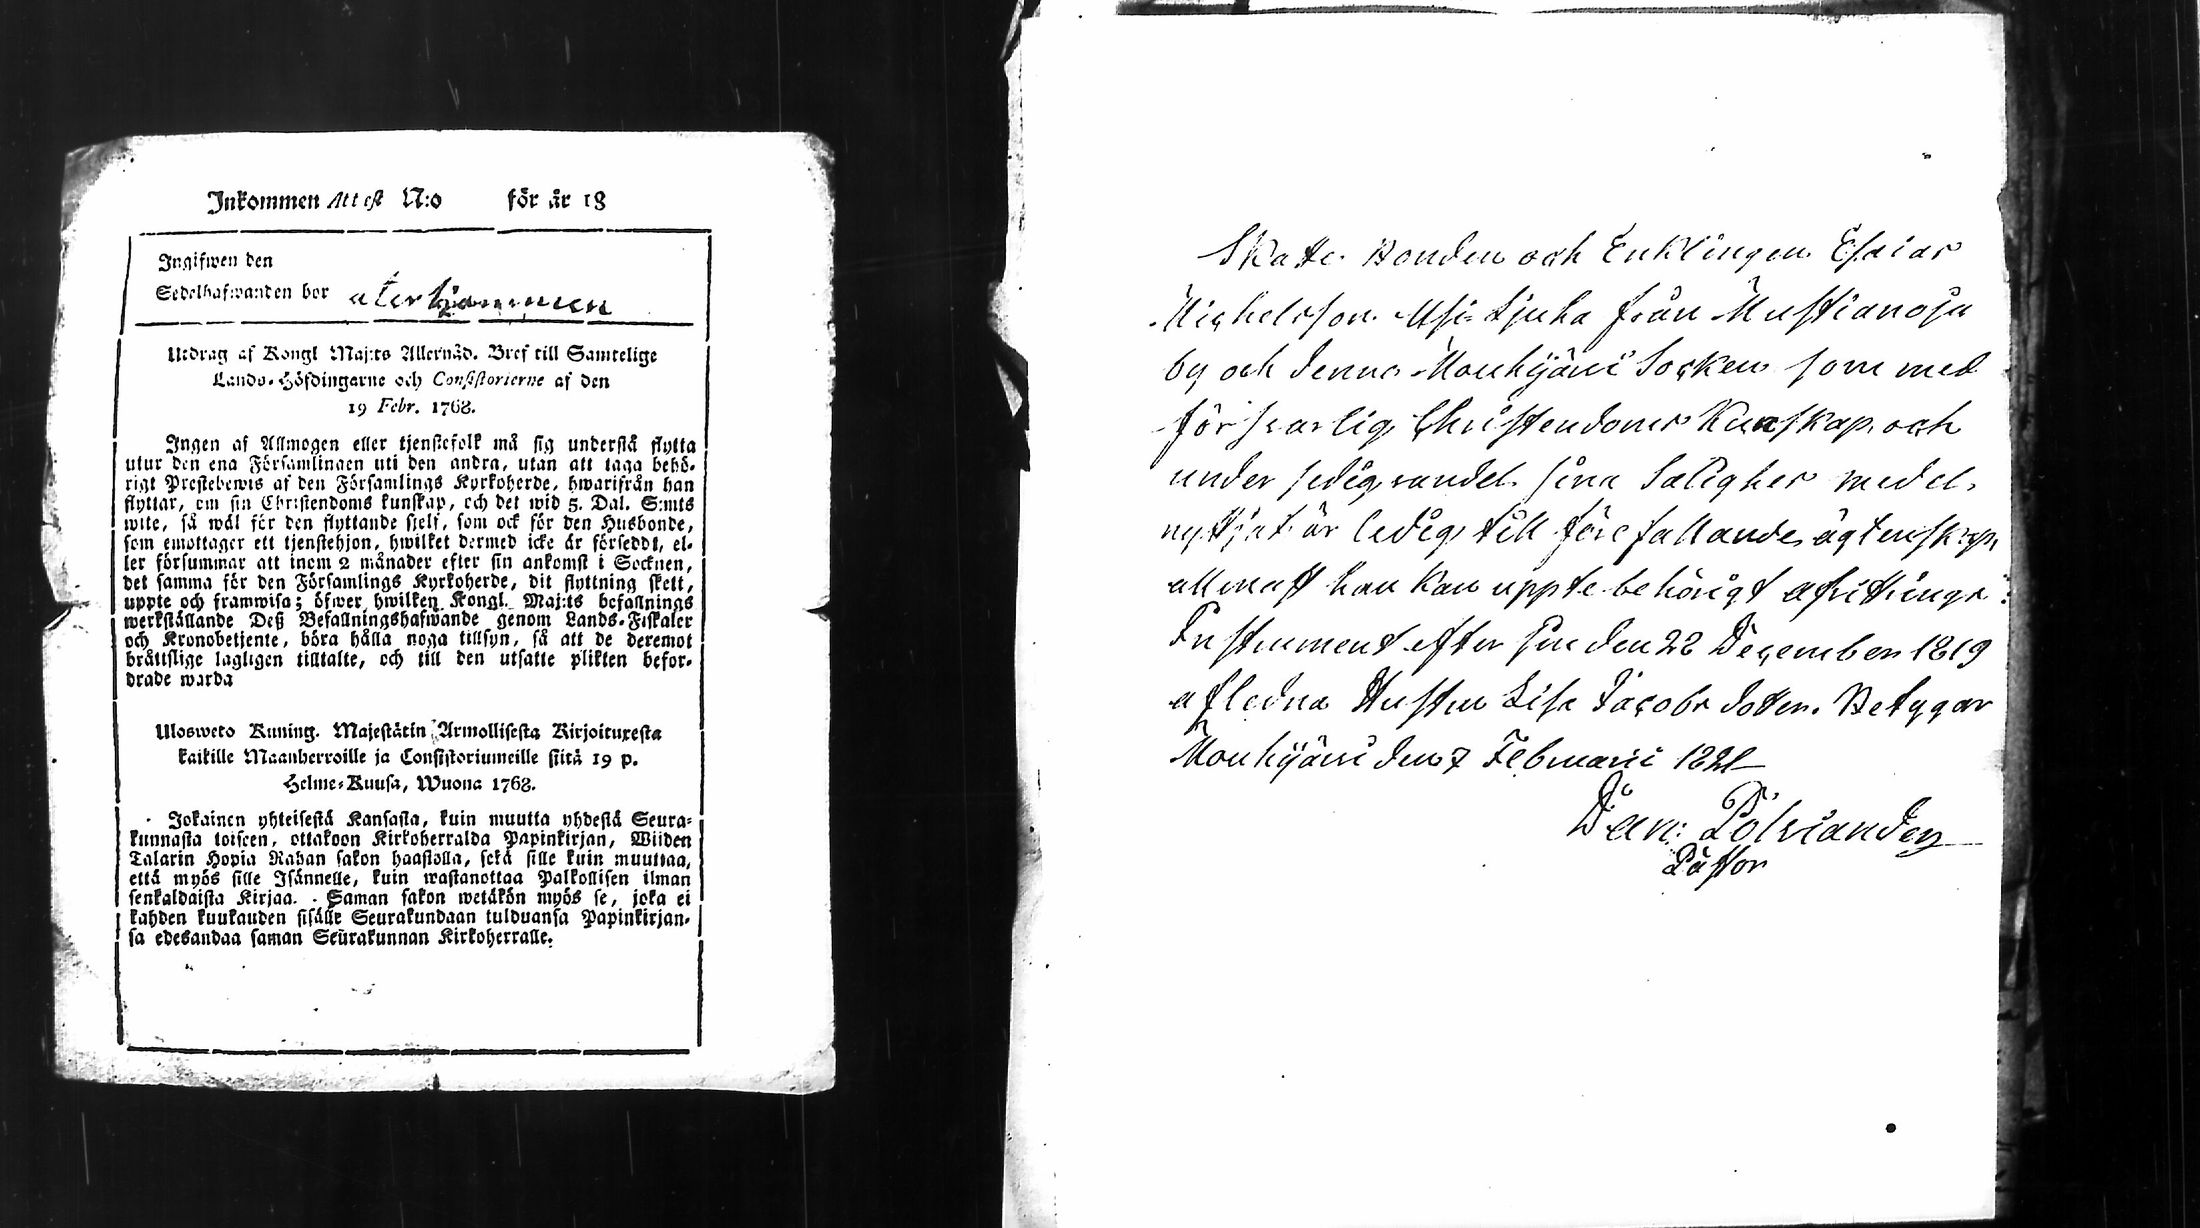 Inkommen Attest N:o för år 18
Ingifwen den
Sedelhafwanden bor återkommen
Utdrag af Kongl Maj:ts Allernåd. Bref till Samtelige
Lands-Höfdingarne och Consistorierne af den
19 Febr. 1768.
Ingen af Allmogen eller tjenstefolk må sig understå flytta
utur den ena Församlingen uti den andra, utan att taga behö-
rigt Prestebewis af den Församlings Kyrkoherde, hwarifrån han
flyttar, om sin Christendoms kunskap, och det wid 5. Dal. S:mts
wite, så wäl för den flyttande sjelf, som ock för den Husbonde,
som emottager ett tjenstehjon, hwilket dermed icke är försedt, el-
ler försummar att inom 2 månader efter sin ankomst i Socknen,
det samma för den Församlings Kyrkoherde, dit flyttning skett,
uppte och framwisa; öfwer hwilken Kongl. Maj:ts befallnings
werkställande Deß Befallningshafwande genom Lands-Fiskaler
och Kronobetjente, böra hålla noga tillsyn, så att de deremot
bråttslige lagligen tilltalte, och till den utsatte plikten befor-
drade warda
Ulosweto Kuning. Majestätin Armollisesta Kirjoituxesta
kaikille Maanherroille ja Consistoriumeille siitä 19 p.
Helme-Kuusa, Wuona 1768.
Jokainen yhteisestä Kansasta, kuin muutta yhdestä Seura-
kunnasta toiseen, ottakoon Kirkoherralda Papinkirjan, Wiiden
Talarin Hopia Rahan sakon haastolla, sekä sille kuin muuttaa,
että myös sille Isännelle, kuin wastanottaa Palkollisen ilman
senkaldaista Kirjaa. Saman sakon wetäkön myös se, joka ei
kahden kuukauden sisälle Seurakundaan tulduansa Papinkirjan-
sa edesandaa saman Seurakunnan Kirkoherralle.
Skatte Bonden och Enklingen Esaias
Michelsson från Mustianoja
by och denna Mouhijärvi Socken som med
försvarlig Christendoms Kunskap och
under sedig vandel sina Salighets medel
nyttjat är ledig till förefallande ägtenskap,
allenast han kan uppte behörigt afvittrings
Instrument efter sin den 28 December 1819
aflidna Hustru Lisa Jacobs dotter. Betygar
Mouhijärvi den 7 Februarii 1821
Dan: Polviander
Pastor